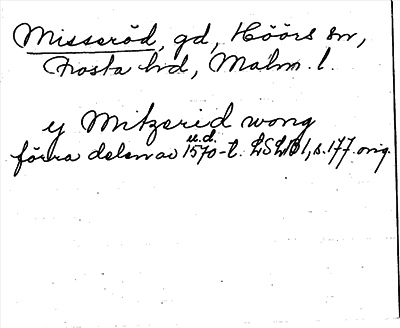 Misseröd, gd, Höörs sn,
Frosta hd, Malm. l.
y Mitzerid wong
u.d.
förra delen av 1570-t. LSLB 1, s. 177. orig.